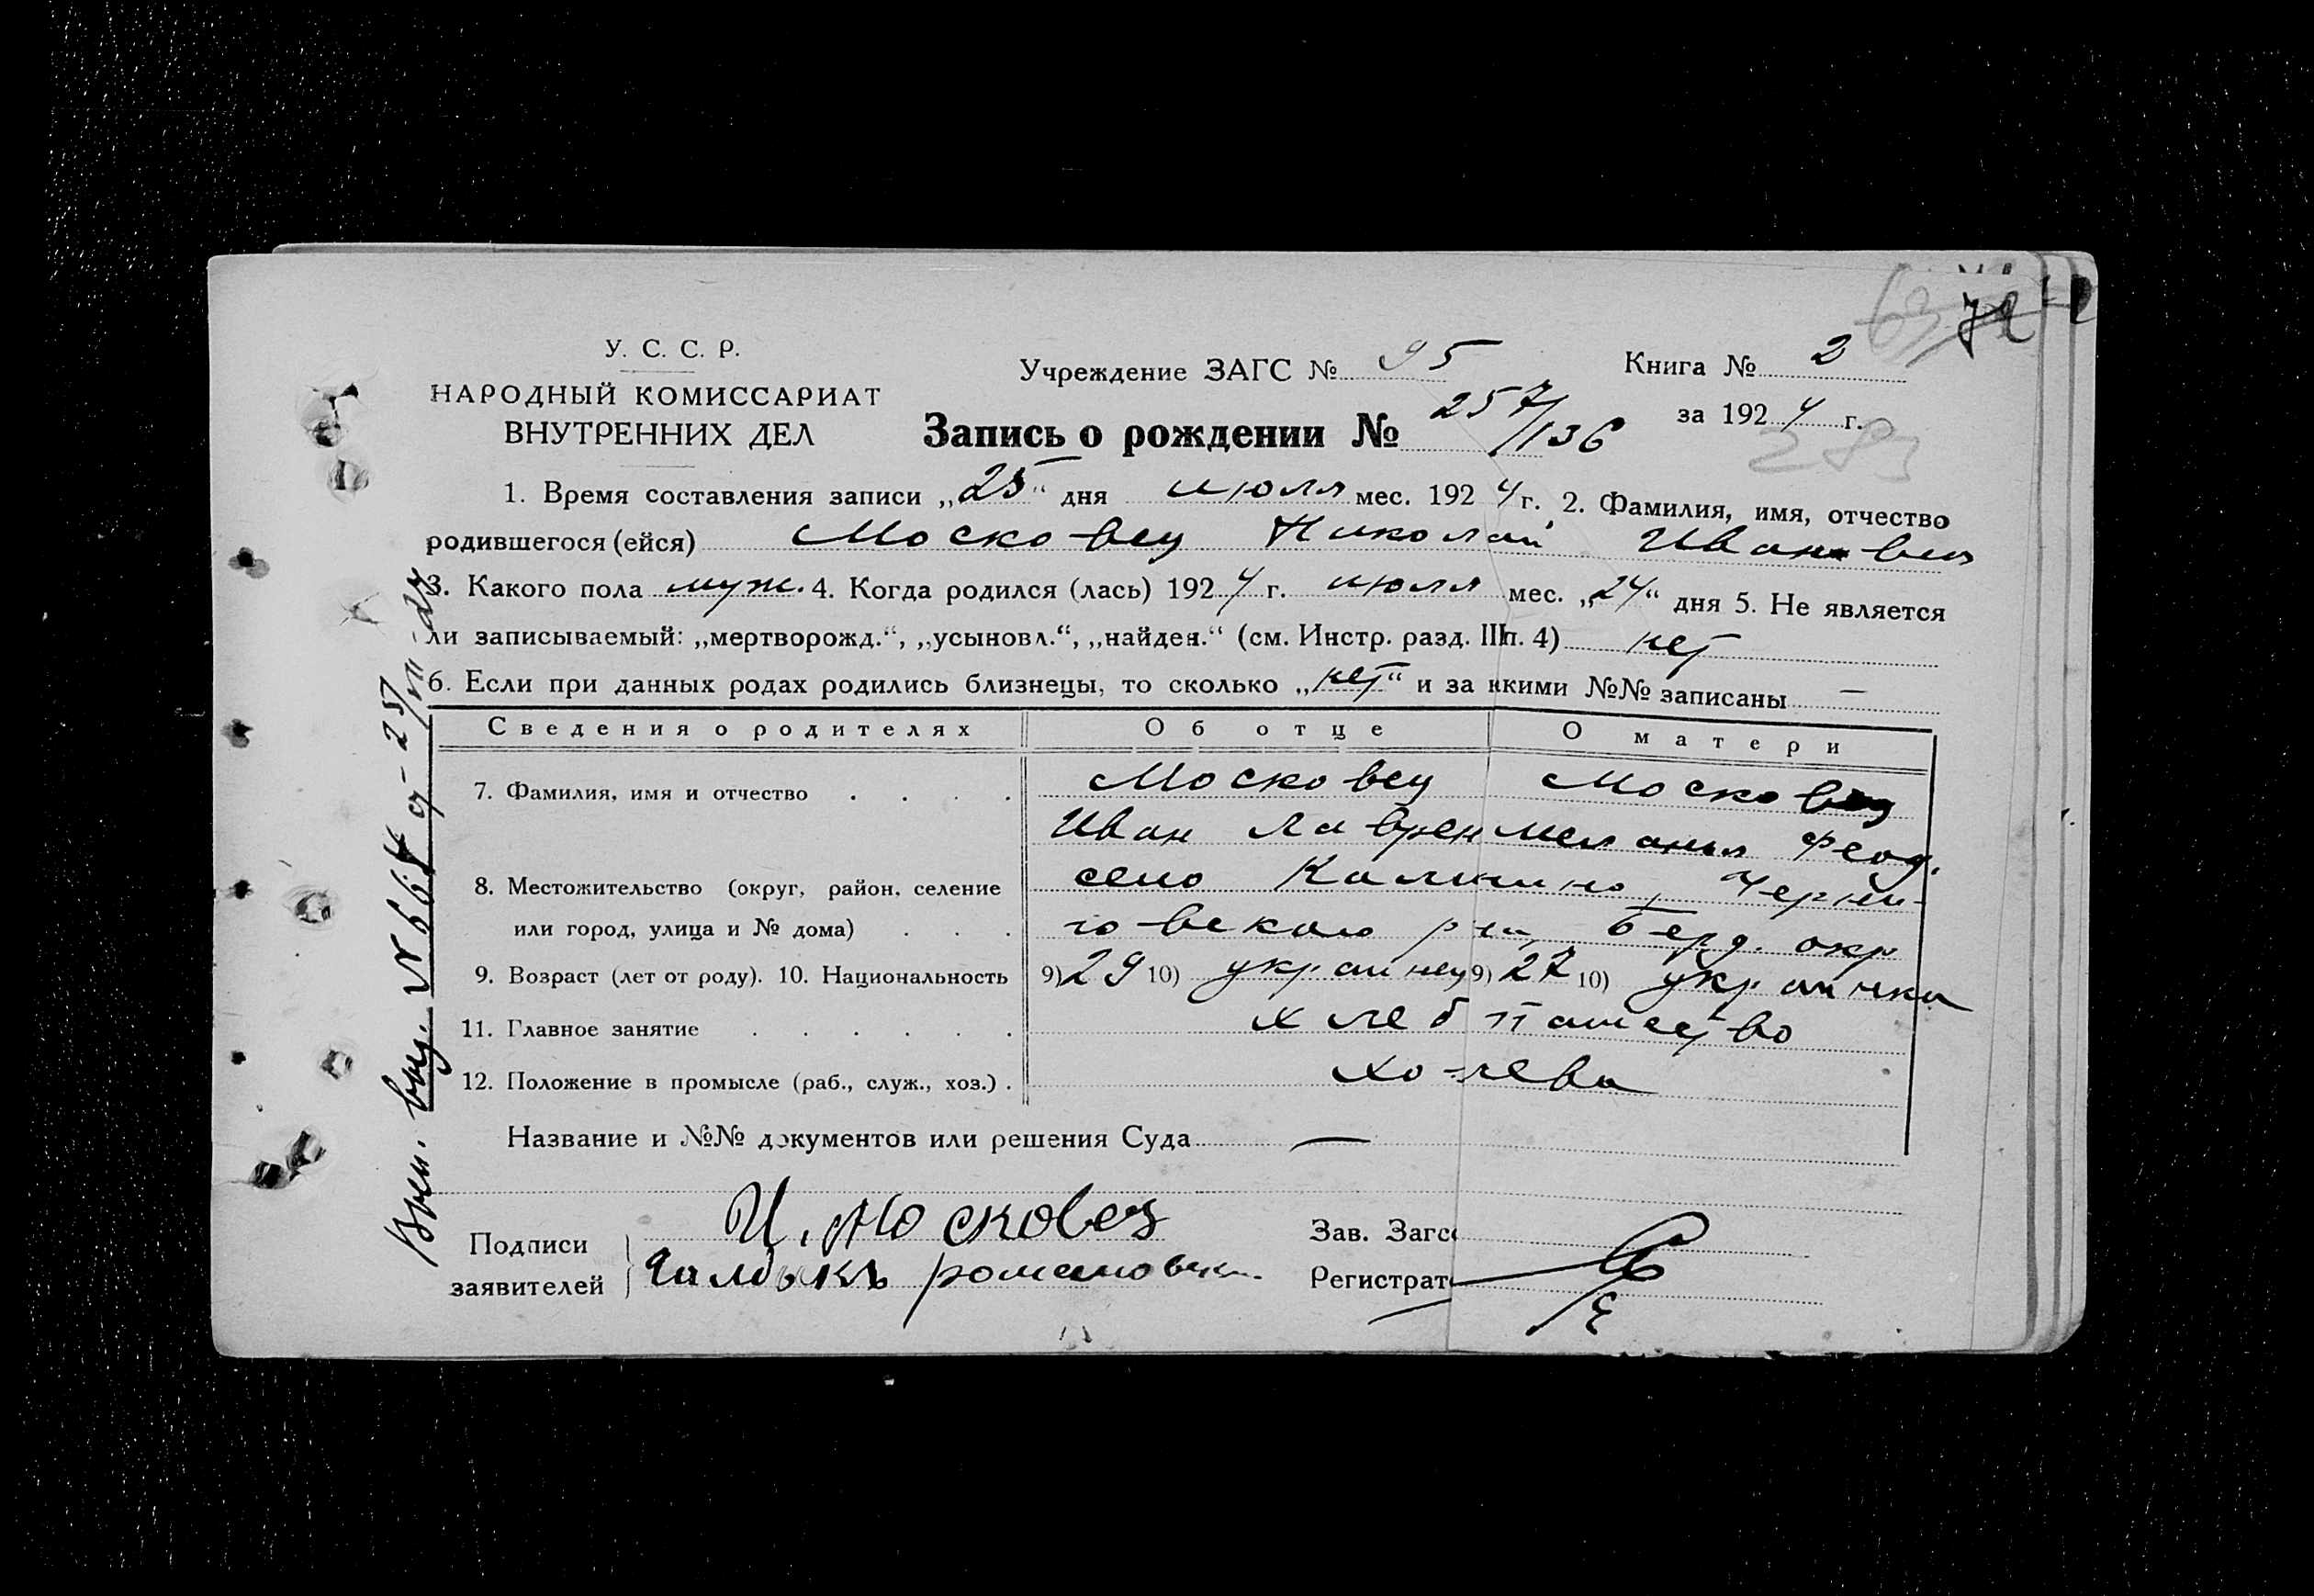 63 72
У. С. С. Р.
НАРОДНЫЙ КОМИССАРИАТ
ВНУТРЕННИХ ДЕЛ
Учреждение ЗАГС № 95
Книга № 2
за 1924 г.
283
Запись о рождении № 257/136
1. Время составления записи „25“ дня июля мес. 1924 г. 2. Фамилия, имя, отчество
родившегося (ейся) Московец Николай Иванович
3. Какого пола муж. 4. Когда родился (лась) 1924 г. июля мес. „24“ дня 5. Не является
ли записываемый: „мертворожд.“, „усыновл.“, „найден.“ (см. Инстр. разд. III п. 4) нет
6. Если при данных родах родились близнецы, то сколько „нет“ и за якими №№ записаны —
Сведения о родителях Об отце О матери
7. Фамилия, имя и отчество Московец Московец
Иван Лаврен Мелания Феод.
8. Местожительство (округ, район, селение село Калинино, Черни-
или город, улица и № дома) говского р-на, Берд. окр
9. Возраст (лет от роду). 10. Национальность 9) 29 10) украинец 9) 27 10) украинка
11. Главное занятие хлебпашество
12. Положение в промысле (раб., служ., хоз.) хозяева
Название и №№ документов или решения Суда —
Подписи
заявителей
И. Московец
Зав. Загс
Регистрат
Вып. выд. № 668